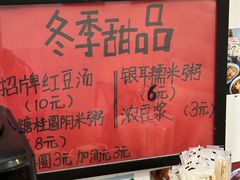 冬季甜品
招牌红豆汤
(10元)
糖桂圆阴米粥
(8元)
圆3元 加汤3元
银耳糯米粥
(6元)
浓豆浆 (3元)